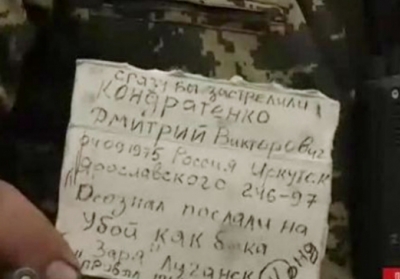 сразу вы застрелили
Кондратенко
Дмитрий Викторович
04 09 1975, Россия Иркутск
Ярославского 246-97
Осознал послали на
убой как быка
"Заря" Луганск